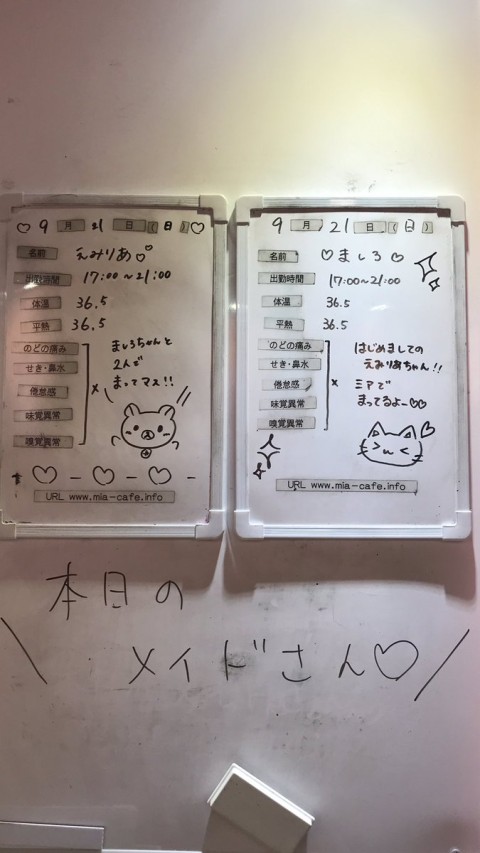 ♡ 9 月 21 日 (日) ♡
名前 えみりあ♡
出勤時間 17:00~21:00
体温 36.5
平熱 36.5
のどの痛み
せき・鼻水
倦怠感 ×
味覚異常
嗅覚異常
ましろちゃんと
2人で
まってマス!!
♡ - ♡ - ♡ -
URL www.mia-cafe.info
9 月 21 日 (日)
名前 ♡ ましろ ♡
出勤時間 17:00~21:00
体温 36.5
平熱 36.5
のどの痛み
せき・鼻水
倦怠感 ×
味覚異常
嗅覚異常
はじめましての
えみりあちゃん!!
ミアで
まってるよー♡♡
URL www.mia-cafe.info
本日の
\ メイドさん♡ /